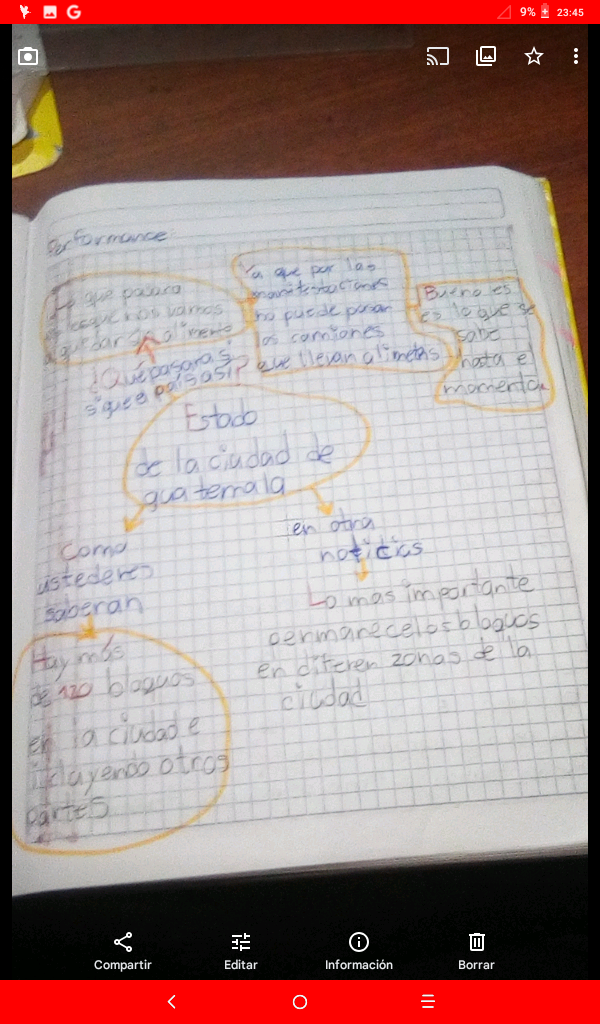 9% 23:45
Performance:
Lo que pasara
es que nos vamos
a quedar sin alimento
Ya que por las
manifestaciones
no puede pasar
los camiones
que llevan alimetos
Bueno es
es lo que se
sabe
hasta el
momento
¿Qué pasara si
sigue el país asi?
Estado
de la ciudad de
guatemala
Como
ustederes
saberan
en otra
notitcias
Hay más
de 120 bloquos
en la ciudad e
incluyendo otros
partes
Lo mas importante
permanece los bloquos
en diferen zonas de la
ciudad
Compartir
Editar
Información
Borrar